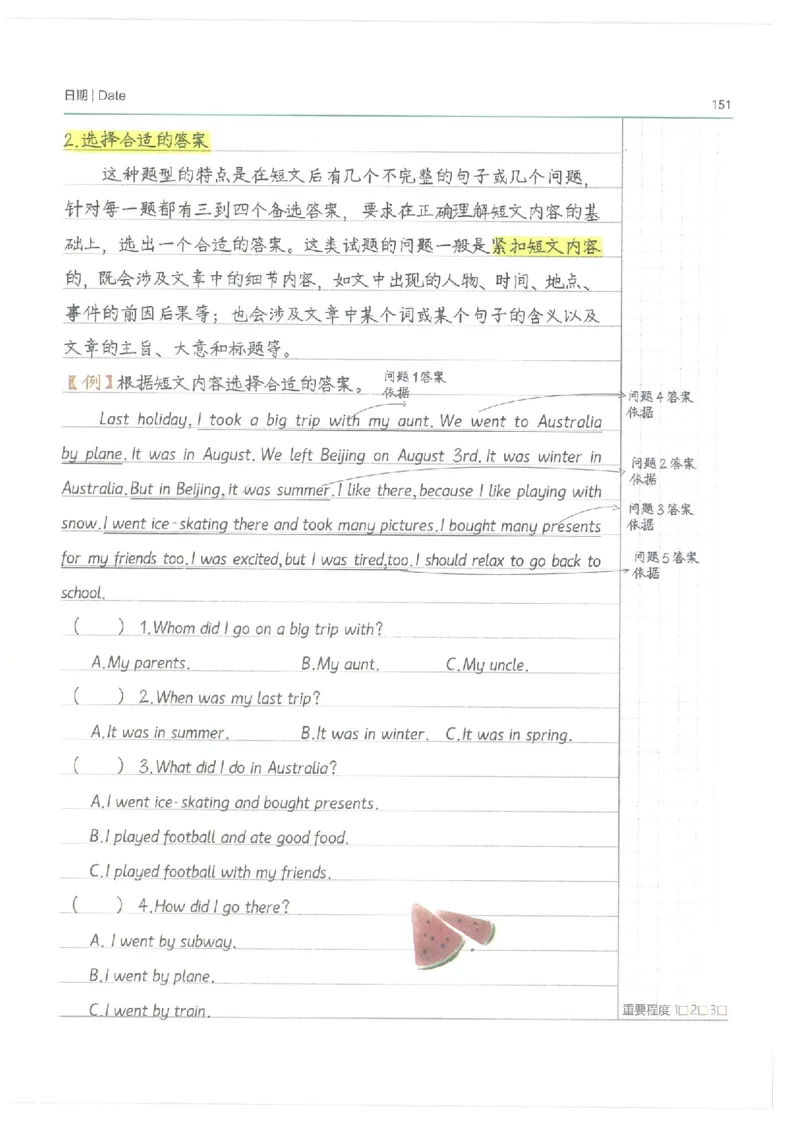 日期 | Date
151
2.选择合适的答案
这种题型的特点是在短文后有几个不完整的句子或几个问题，
针对每一题都有三到四个备选答案，要求在正确理解短文内容的基
础上，选出一个合适的答案。这类试题的问题一般是紧扣短文内容
的，既会涉及文章中的细节内容，如文中出现的人物、时间、地点、
事件的前因后果等；也会涉及文章中某个词或某个句子的含义以及
文章的主旨、大意和标题等。
【例】根据短文内容选择合适的答案。
问题1答案
依据
Last holiday, I took a big trip with my aunt. We went to Australia
问题4答案
依据
by plane. It was in August. We left Beijing on August 3rd, it was winter in
Australia. But in Beijing, it was summer. I like there, because I like playing with
问题2答案
依据
snow. I went ice-skating there and took many pictures. I bought many presents
问题3答案
依据
for my friends too. I was excited, but I was tired, too. I should relax to go back to
问题5答案
依据
school.
(    ) 1.Whom did I go on a big trip with?
A.My parents. B.My aunt. C.My uncle.
(    ) 2.When was my last trip?
A.It was in summer. B.It was in winter. C.It was in spring.
(    ) 3.What did I do in Australia?
A.I went ice-skating and bought presents.
B.I played football and ate good food.
C.I played football with my friends.
(    ) 4.How did I go there?
A. I went by subway.
B.I went by plane.
C.I went by train.
重要程度 1□2□3□